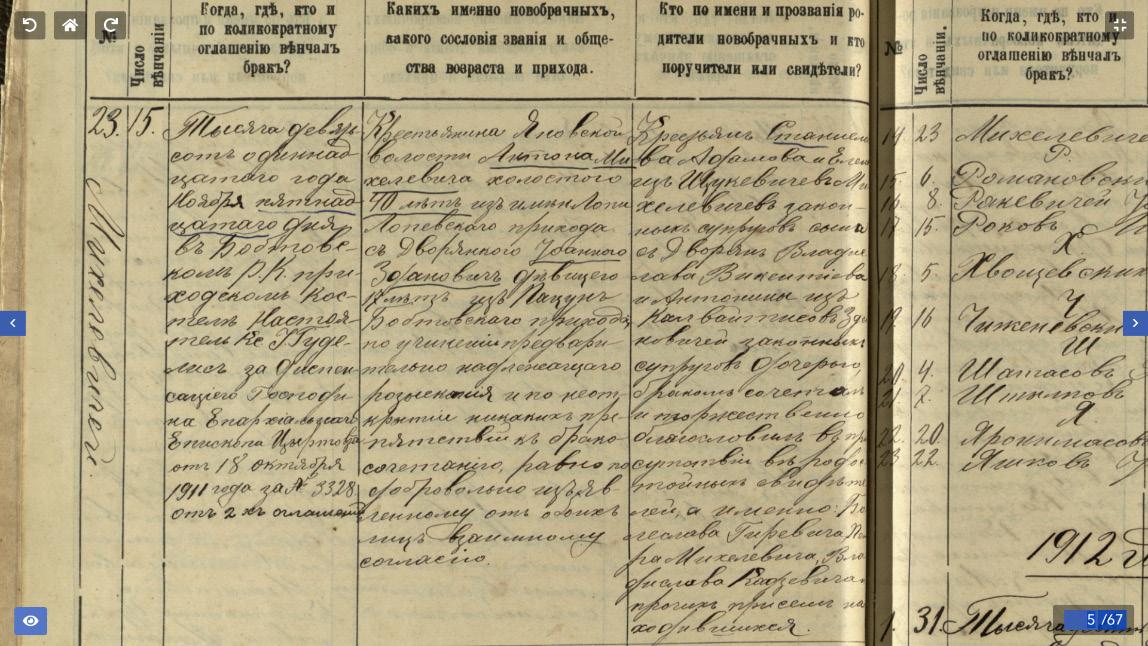 №
Число вѣнчанія.
Когда, гдѣ, кто и
по коликократному
оглашенію вѣнчалъ
бракъ?
Какихъ именно новобрачныхъ,
какого сословія званія и обще-
ства возраста и прихода.
Кто по имени и прозванія ро-
дители новобрачныхъ и кто
поручители или свидѣтели?
23.
15.
Михелевичей
Тысяча девять-
сотъ одиннад-
цатого года
Ноября пятнад-
цатаго дня
въ Бобтов-
комъ Р.К. при-
ходскомъ Кос-
телѣ Настоя-
тель Кс
лисъ за диспен-
саціею Господи-
на Епархіальнаго
Епископа Цыртовта
отъ 18 октября
1911 года за № 3328
отъ 2 хъ оглашеній
Крестьянина Яновской
волости Антона Ми
хелевича холостого
40 лѣтъ изъ имѣн. Лопи
Лопевскаго прихода
съ Дворянкою Іоанною
Здановичъ дѣвицею
лѣтъ изъ Пацунъ
Бобтовскаго прихода,
по учиненіи предвари-
тельно надлежащаго
розысканія и по неот-
крытіи никакихъ пре-
пятствій къ брако-
сочетанію, равно по
добровольно изъяв-
ленному отъ обоихъ
лицъ взаимному
согласію.
Крестьянъ Станисла
ва Адамова и Елен
изъ Шукевичевъ Ми
хелевичевъ закон-
ныхъ супруговъ сына
съ Дворянъ Владис
лава Викентіева
и Антонины изъ
Здан
новичей законныхъ
супруговъ дочерью,
бракомъ сочеталъ
и торжественно
благословилъ въ при
сутствіи вѣродо-
стойныхъ свидѣте
лей, а именно: Бо
леслава Гиревича Пет
ра Михелевича, Вла
дислава Кадзевича и
прочихъ при семъ на
ходившихся.
№
Число вѣнчанія.
Когда, гдѣ, кто и
по коликократному
оглашенію вѣнчалъ
бракъ?
14 23 Михелевиче
Р.
15. 6. Романовски
16. 8. Ракевичей
17. 15. Роковъ
Х
18. 5. Хвощевский
Ч
19. 16 Чижевски
Ш
20. 4. Шатасовъ
21. 7. Шпиловъ
Я
22. 20. Якимасовъ
23 22. Яшковъ
1912
1. 31. Тысяча
5 /67